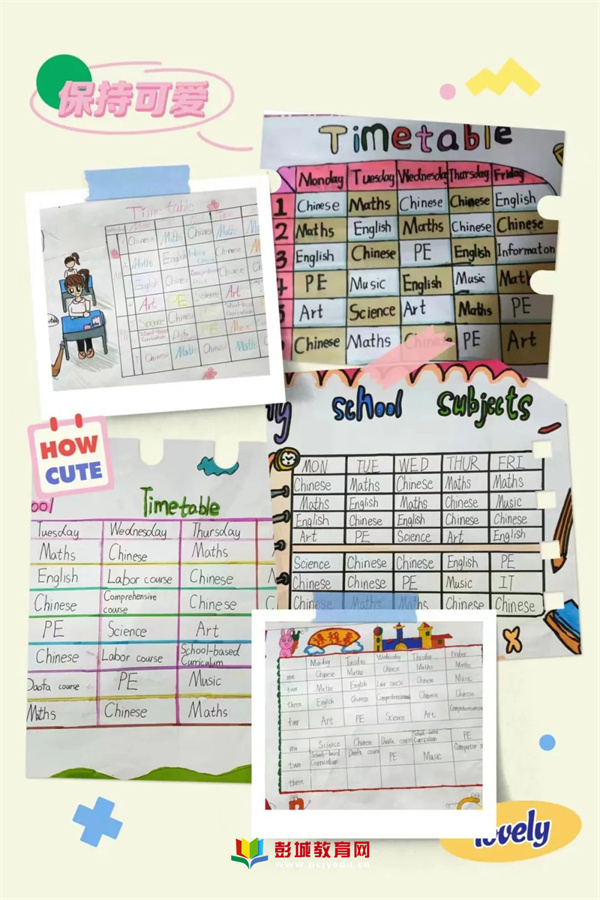 保持可爱
Timetable
Monday Tuesday Wednesday Thursday Friday
1 Chinese Maths Chinese Chinese English
2 Maths English Maths Chinese Chinese
3 English Chinese PE English Informaton
4 PE Music English Music Math
5 Art Science Art Maths PE
Chinese Maths Chinese PE Art
Time table
Chinese Maths Chinese Maths
Maths English
English Chinese Chinese
Art PE Science Art
Science Chinese PE
PE Music
Chinese Math Chinese Math
school subjects
MON TUE WED THUR FRI
Chinese Maths Chinese Maths Maths
Maths English Maths Chinese Music
English Chinese English Chinese Chinese
Art PE Science Art English
Science Chinese Chinese English PE
Chinese Chinese PE Music IT
Chinese Maths Maths Chinese Chinese
HOW
CUTE
ool Timetable
Tuesday Wednesday Thursday
Maths Chinese Maths
English Labor course Chinese
Chinese Comprehensive course Chinese
PE Science Art
Chinese Labor course School-based Curriculum
Daofa course PE Music
Maths Chinese Maths
课程表
Monday Tuesday Wednesday Thursday Friday
one Chinese Maths Chinese Maths
two Maths English Labor course Chinese Music
three English Chinese Comprehensive Chinese Chinese
four Art PE Science Art
one Science Chinese Daofa course School-based Curriculum PE
two School-based Curriculum Daofa course PE Music
three
lovely
彭城教育网